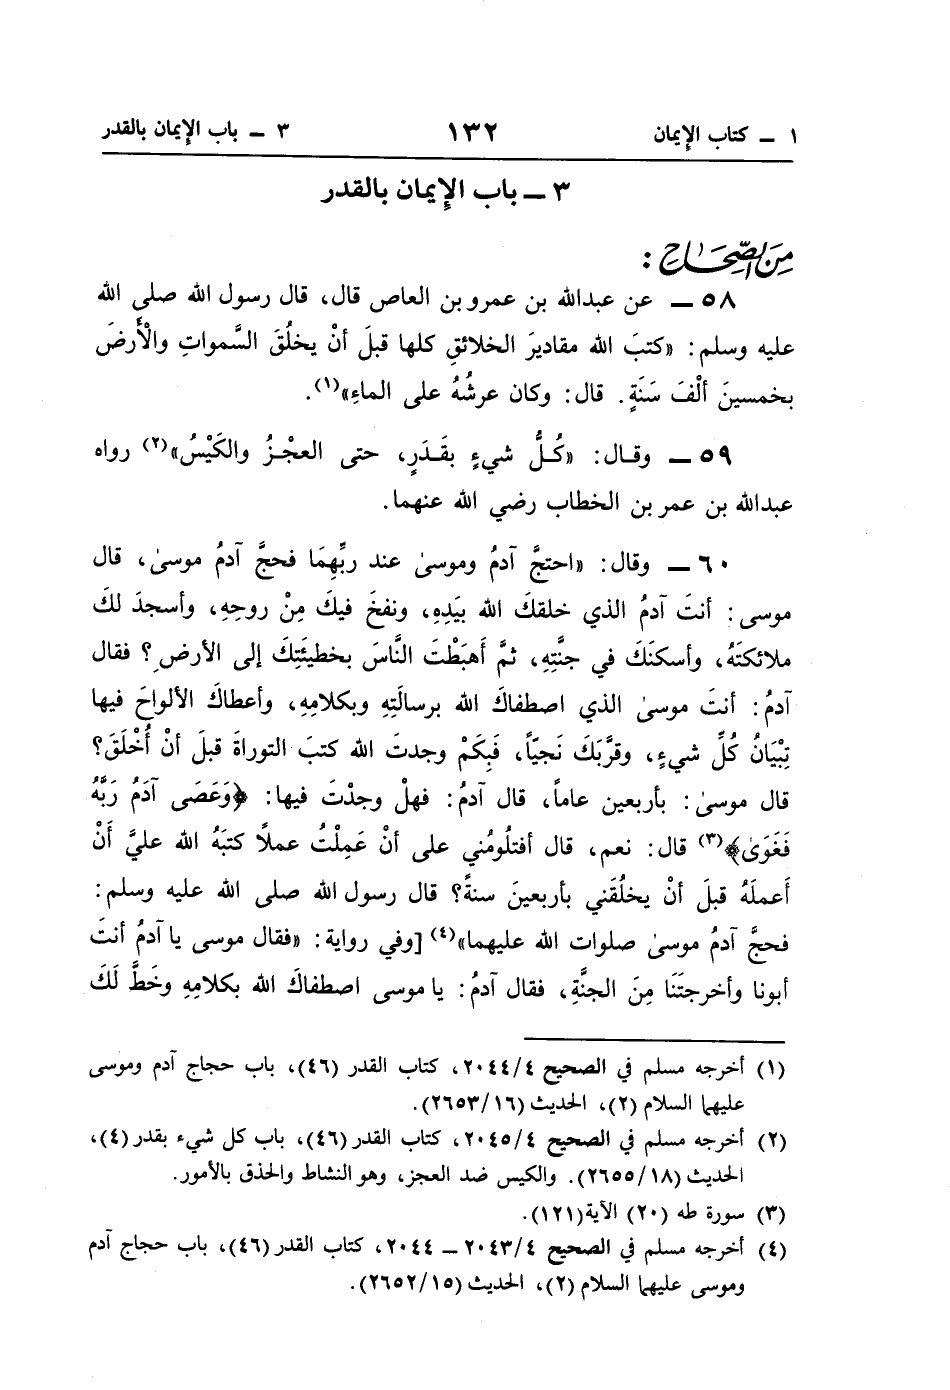 ١ ــ كتاب الإيمان ١٣٢ ٣ ــ باب الإيمان بالقدر
٣ ــ باب الإيمان بالقدر
مِنَ الصِّحَاحِ :
٥٨ ــ عن عبدالله بن عمرو بن العاص قال، قال رسول الله صلى الله
عليه وسلم: «كتبَ الله مقاديرَ الخلائقِ كلها قبلَ أنْ يخلُقَ السَّمواتِ والْأَرضَ
بخمسينَ ألْفَ سَنَةٍ. قال: وكان عرشُهُ على الماءِ»(١).
٥٩ ــ وقال: «كُلُّ شيءٍ بقَدَرٍ، حتى العجْزُ والكَيْسُ»(٢) رواه
عبدالله بن عمر بن الخطاب رضي الله عنهما.
٦٠ ــ وقال: «احتجَّ آدمُ وموسىٰ عند ربِّهِمَا فحجَّ آدمُ موسىٰ، قال
موسى: أنتَ آدمُ الذي خلقكَ الله بيَدِهِ، ونفخَ فيكَ مِنْ روحِهِ، وأسجدَ لكَ
ملائكتَهُ، وأسكنَكَ في جنَّتِهِ، ثمَّ أهبَطْتَ النَّاسَ بخطيئَتِكَ إلى الأرضِ؟ فقال
آدمُ: أنتَ موسىٰ الذي اصطفاكَ الله برسالَتِهِ وبكلامِهِ، وأعطاكَ الألواحَ فيها
تِبْيَانُ كُلِّ شيءٍ، وقرَّبَكَ نَجيّاً، فَبِكَمْ وجدتَ الله كتبَ التوراةَ قبلَ أنْ أُخْلَقَ؟
قال موسىٰ: بأربعين عاماً، قال آدمُ: فهلْ وجدْتَ فيها: ﴿وَعَصَى آدَمُ رَبَّهُ
فَغَوَىٰ﴾(٣) قال: نعم، قال أفتلُومُني على أنْ عَمِلْتُ عملاً كتبَهُ الله عليَّ أَنْ
أَعملَهُ قبلَ أنْ يخلُقَني بأربعينَ سنةً؟ قال رسول الله صلى الله عليه وسلم:
فحجَّ آدمُ موسىٰ صلوات الله عليهما»(٤) [وفي رواية: «فقال موسى يا آدمُ أنتَ
أبونا وأخرجتَنَا مِنَ الجنَّةِ، فقال آدمُ: يا موسى اصطفاكَ الله بكلامِهِ وخَطَّ لَكَ
(١) أخرجه مسلم في الصحيح ٢٠٤٤/٤، كتاب القدر (٤٦)، باب حجاج آدم وموسى
عليهما السلام (٢)، الحديث (٢٦٥٣/١٦).
(٢) أخرجه مسلم في الصحيح ٢٠٤٥/٤، كتاب القدر (٤٦)، باب كل شيء بقدر (٤)،
الحديث (٢٦٥٥/١٨). والكيس ضد العجز، وهو النشاط والحذق بالأمور.
(٣) سورة طه (٢٠) الآية (١٢١).
(٤) أخرجه مسلم في الصحيح ٢٠٤٣/٤ ــ ٢٠٤٤، كتاب القدر (٤٦)، باب حجاج آدم
وموسى عليهما السلام (٢)، الحديث (٢٦٥٢/١٥).